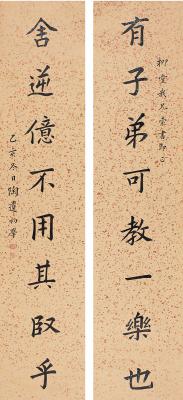 有子弟可教一樂也
柳堂我兄索書即正
舍逆億不用其臤乎
乙亥冬日陶遵初學